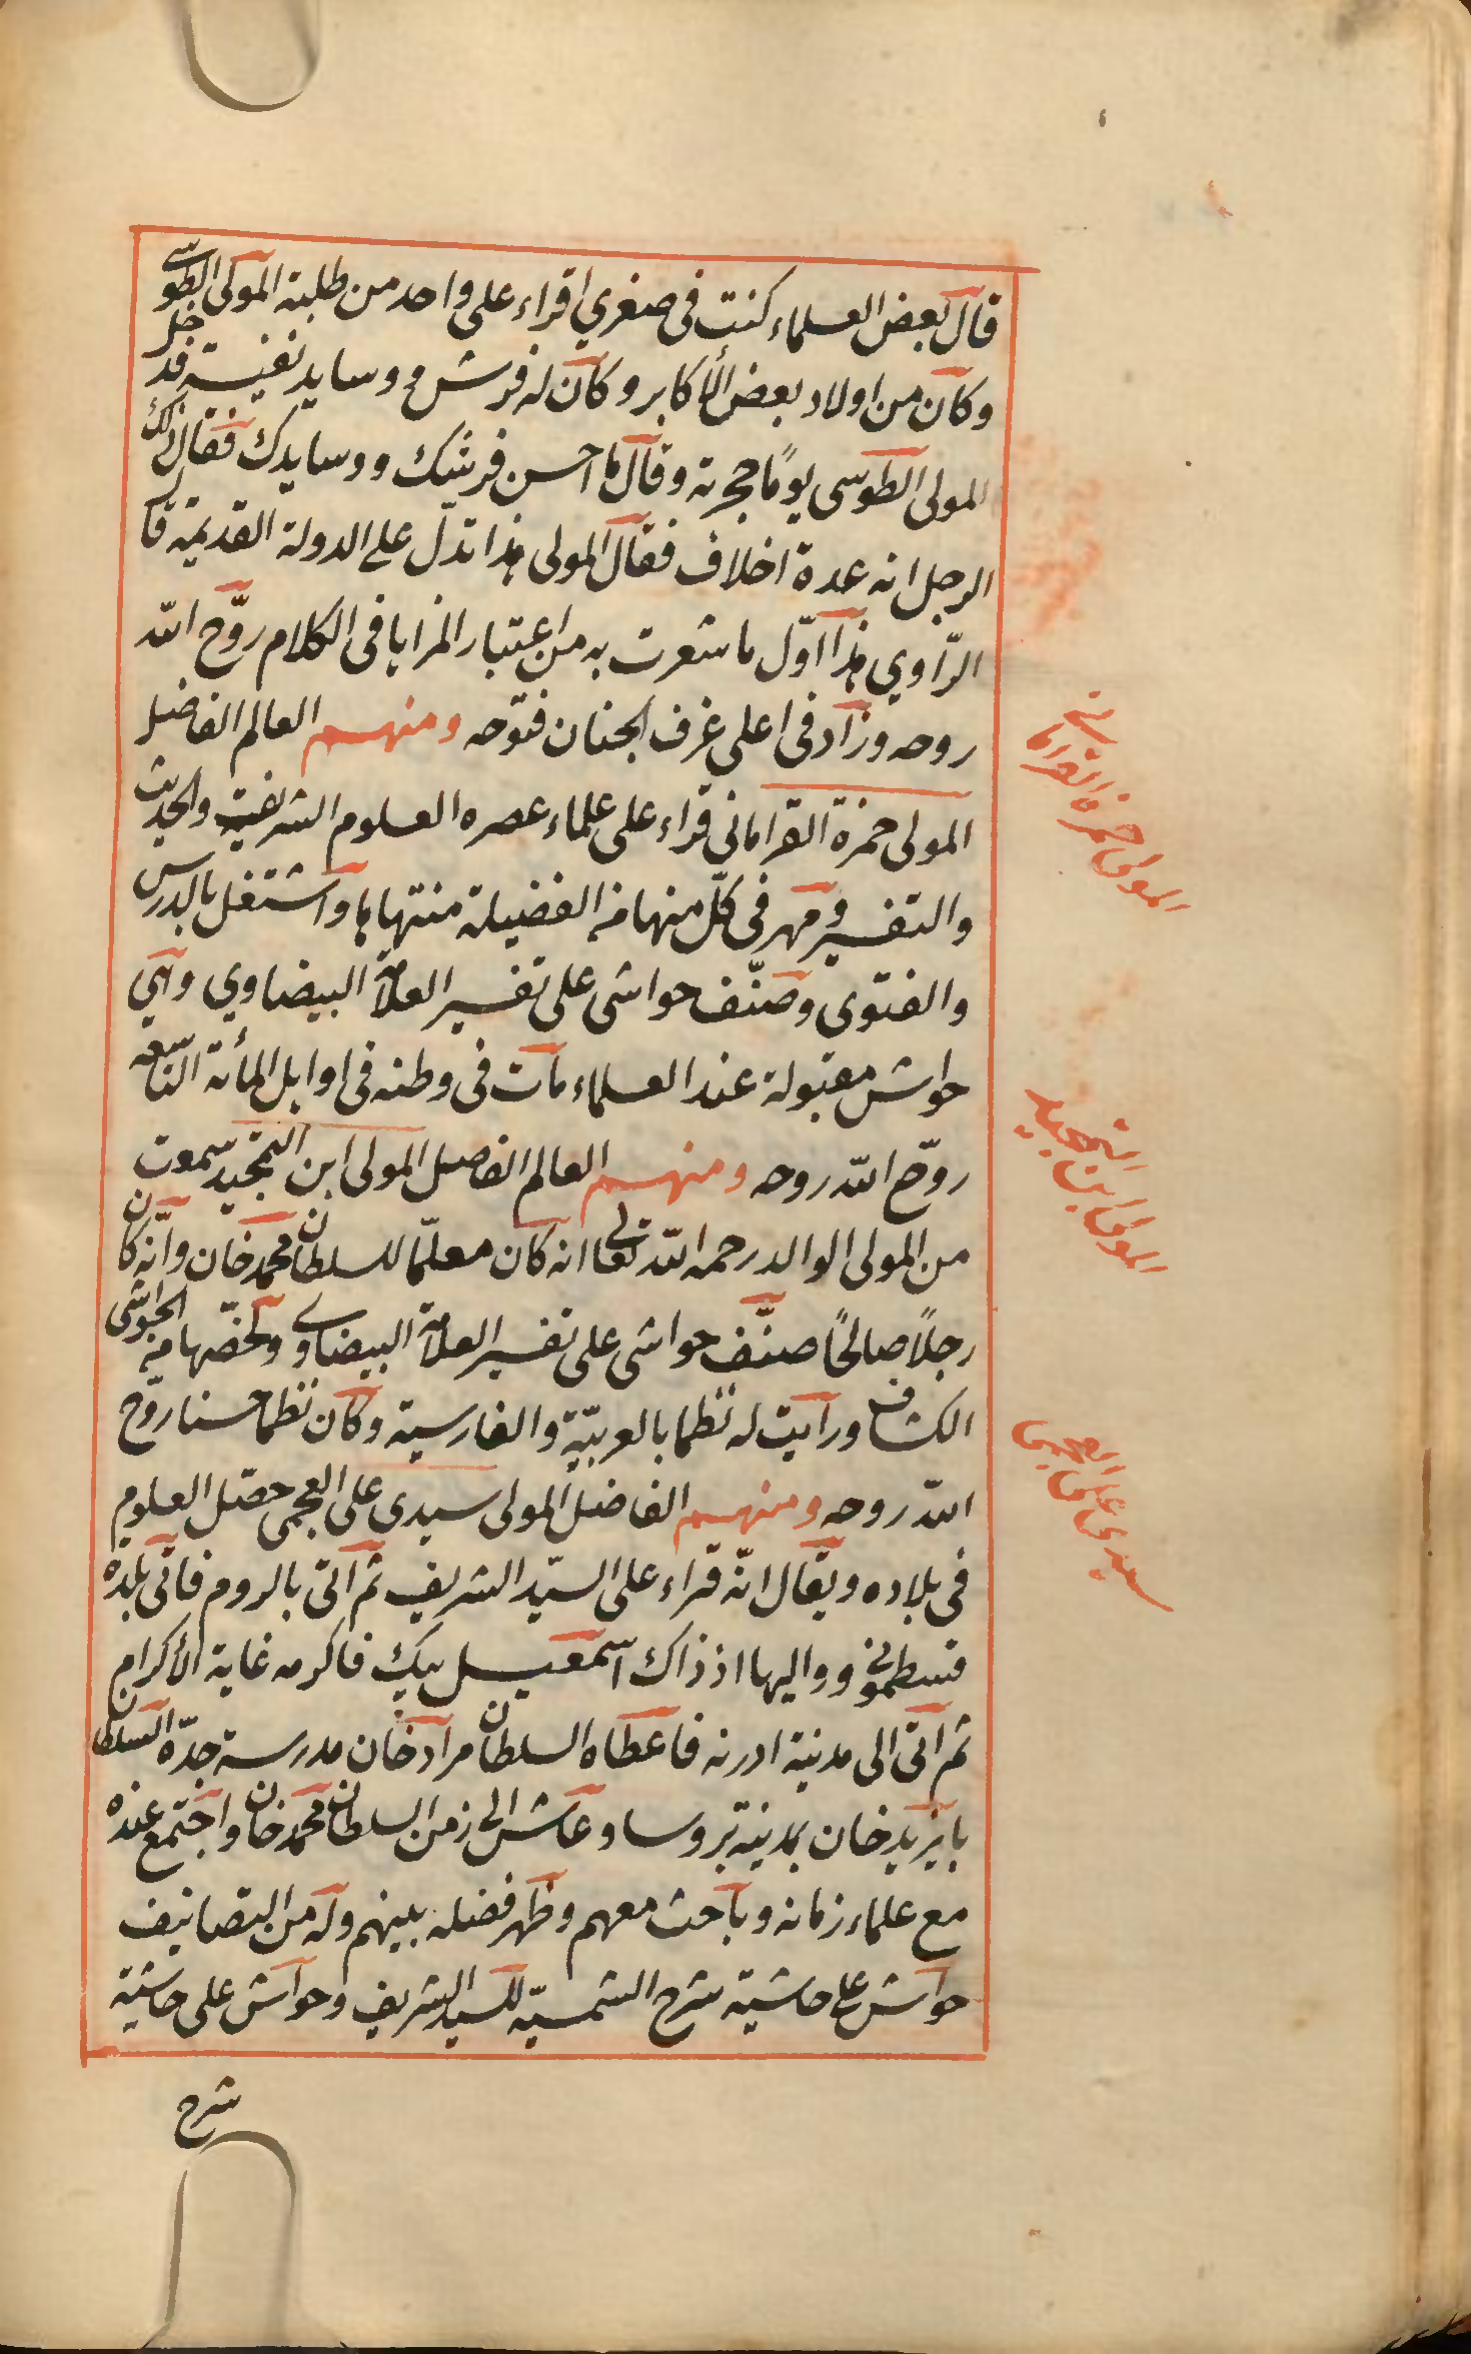 قال بعض العلماء كنت فى صغري اقراء على واحد من طلبة المولى الطوسى
وكان من اولاد بعض الأكابر وكان له فرش ووسايد نفيسة فدخل
المولى الطوسى يومًا حجرته وقال ما احسن فرشك ووسايدك فقال ذلك
الرجل انه عدة اخلاف فقال المولى هذا تدل على الدولة القديمة قال
الرّاوي هذا اوّل ما شعرت به من اعتبار المزايا فى الكلام روّح الله
روحه وزاد فى اعلى غرف الجنان فتوحه ومنهم العالم الفاضل
المولى حمزة القرامانى قراء على علماء عصره العلوم الشريفة والحديث
والتفسير ومهر فى كلّ منها من الفضيلة منتهاها واشتغل بالدرس
والفتوى وصنّف حواشى على تفسير العلامة البيضاوي وهى
حواش مقبولة عند العلماء مات فى وطنه فى اوايل المأئة التاسعه
روّح الله روحه ومنهم العالم الفاضل المولى ابن التمجيد سمعت
من المولى الوالد رحمه الله تعالى انه كان معلّما للسلطان محمد خان وانّه كان
رجلاً صالحًا صنّف حواشى على تفسير العلامة البيضاوى ولخصّها من الحواشى
الكشاف ورايت له نظما بالعربيّة والفارسية وكان نظما حسنا روّح
الله روحه ومنهم الفاضل المولى سيدى على العجمى حصّل العلوم
فى بلاده ويقال انّه قراء على السيّد الشريف ثم اتى بالروم فاتى بلدة
قسطمونى وواليها اذ ذاك اسمعيل بيك فاكرمه غاية الأكرام
ثم اتى الى مدينة ادرنه فاعطاه السلطان مراد خان مدرسة جدّه السلطان
بايزيد خان بمدينة بروسا وعاش الى زمن السلطان محمد خان واجتمع عنده
مع علماء زمانه وباحث معهم وظهر فضله بينهم وله من التصانيف
حواش على حاشية شرح الشمسيّة للسيد الشريف وحواش على حاشية
شرح
المولى حمزة القرامانى
المولى ابن التمجيد
سيدى على العجمى